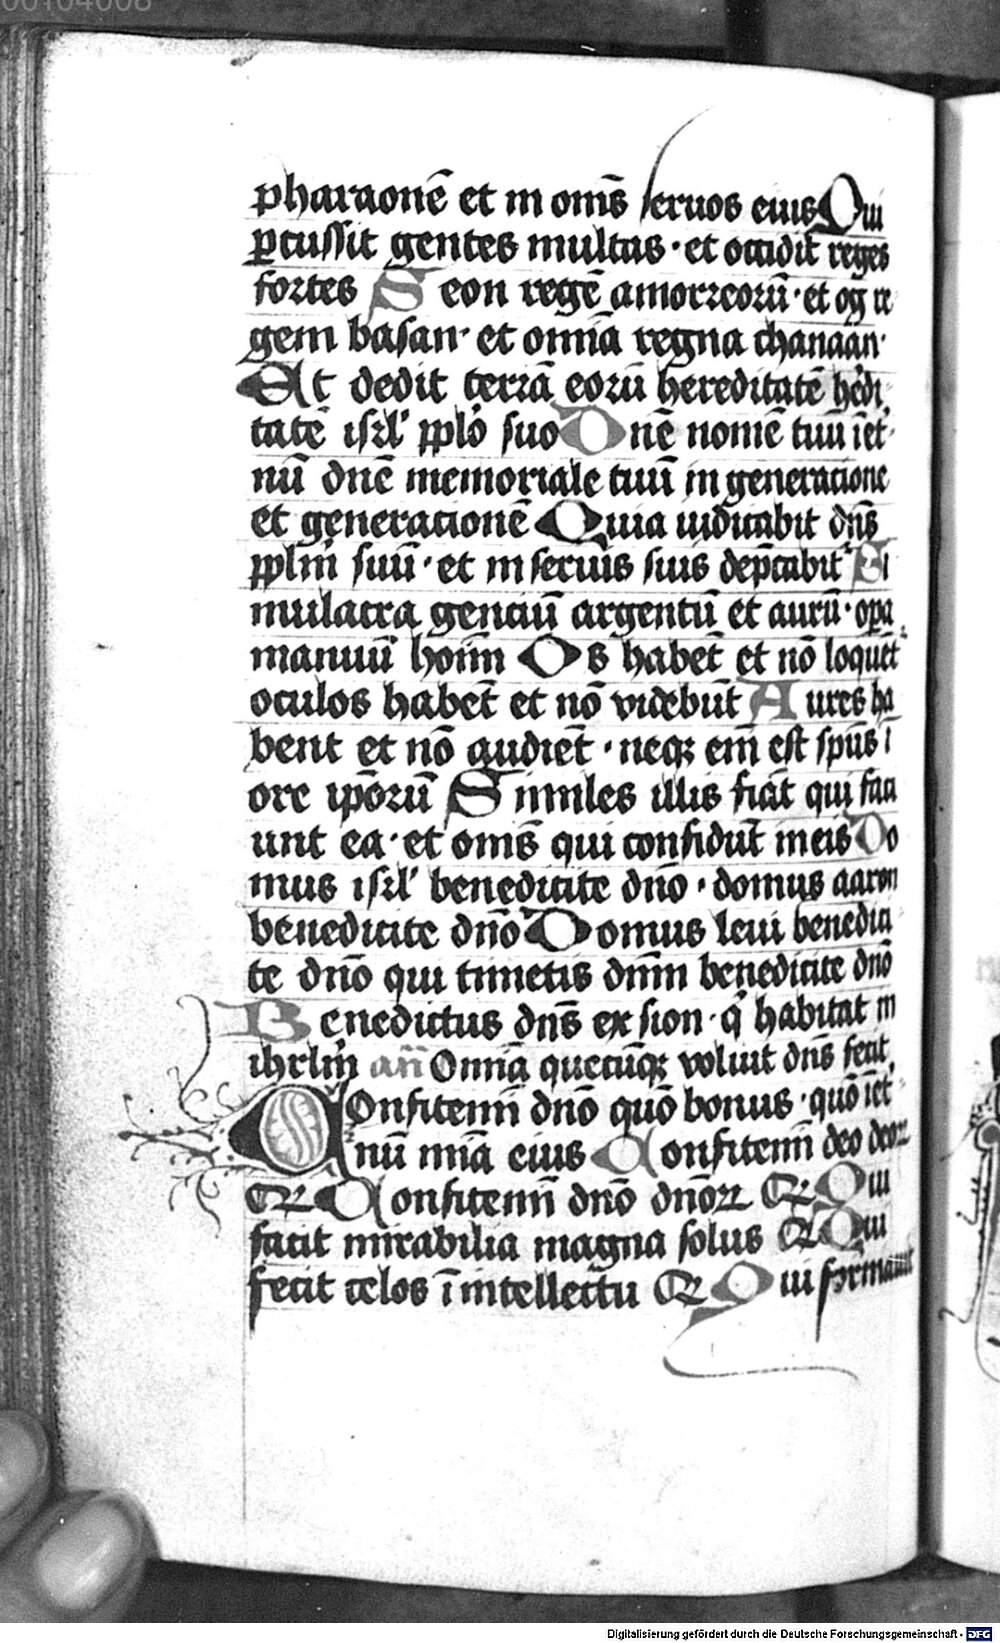 00104008
pharaonē et in om̄s seruos eius Qui
ꝑcussit gentes multas · et occidit reges
fortes Seon regē amorreorū · et og re
gem basan · et omīa regna chanaan ·
Et dedit terrā eorū hereditatē h̓edi
tatē isrl̓ ꝓplo̓ suo Dn̄e nomē tuū ī et
nū dn̄e memoriale tuū in generacione
et generacionē Quia iudicabit dn̄s
ꝓplm̓ suū · et in seruis suis dep̄cabit᷑ Si
mulacra genciū argentū et aurū · oꝑa
manuū hoīm Os habēt et nō loquēt᷑
oculos habēt et nō videbūt Aures ha
bent et nō audiēt · neqꝫ em̄ est spūs ī
ore ip̄orū Similes illis fiāt qui faci
unt ea · et om̄s qui confidūt in eis Do
mus isrl̓ benedicite dn̄o · domus aaron
benedicite dn̄o Domus leui benedici
te dn̄o qui timetis dn̄m benedicite dn̄o
Benedictus dn̄s ex sion · q̓ habitat in
ihrlm̓ añ Omīa quecūqꝫ voluit dn̄s fecit
Confitemī dn̄o quō bonus · quō ī et
nū mīa eius Confitemī deo deoꝝ
Qꝛ Confitemī dn̄o dn̄oꝝ Qꝛ Qui
facit mirabilia magna solus Qꝛ Qui
fecit celos ī intellectu Qꝛ Qui formauit
Digitalisierung gefördert durch die Deutsche Forschungsgemeinschaft - DFG